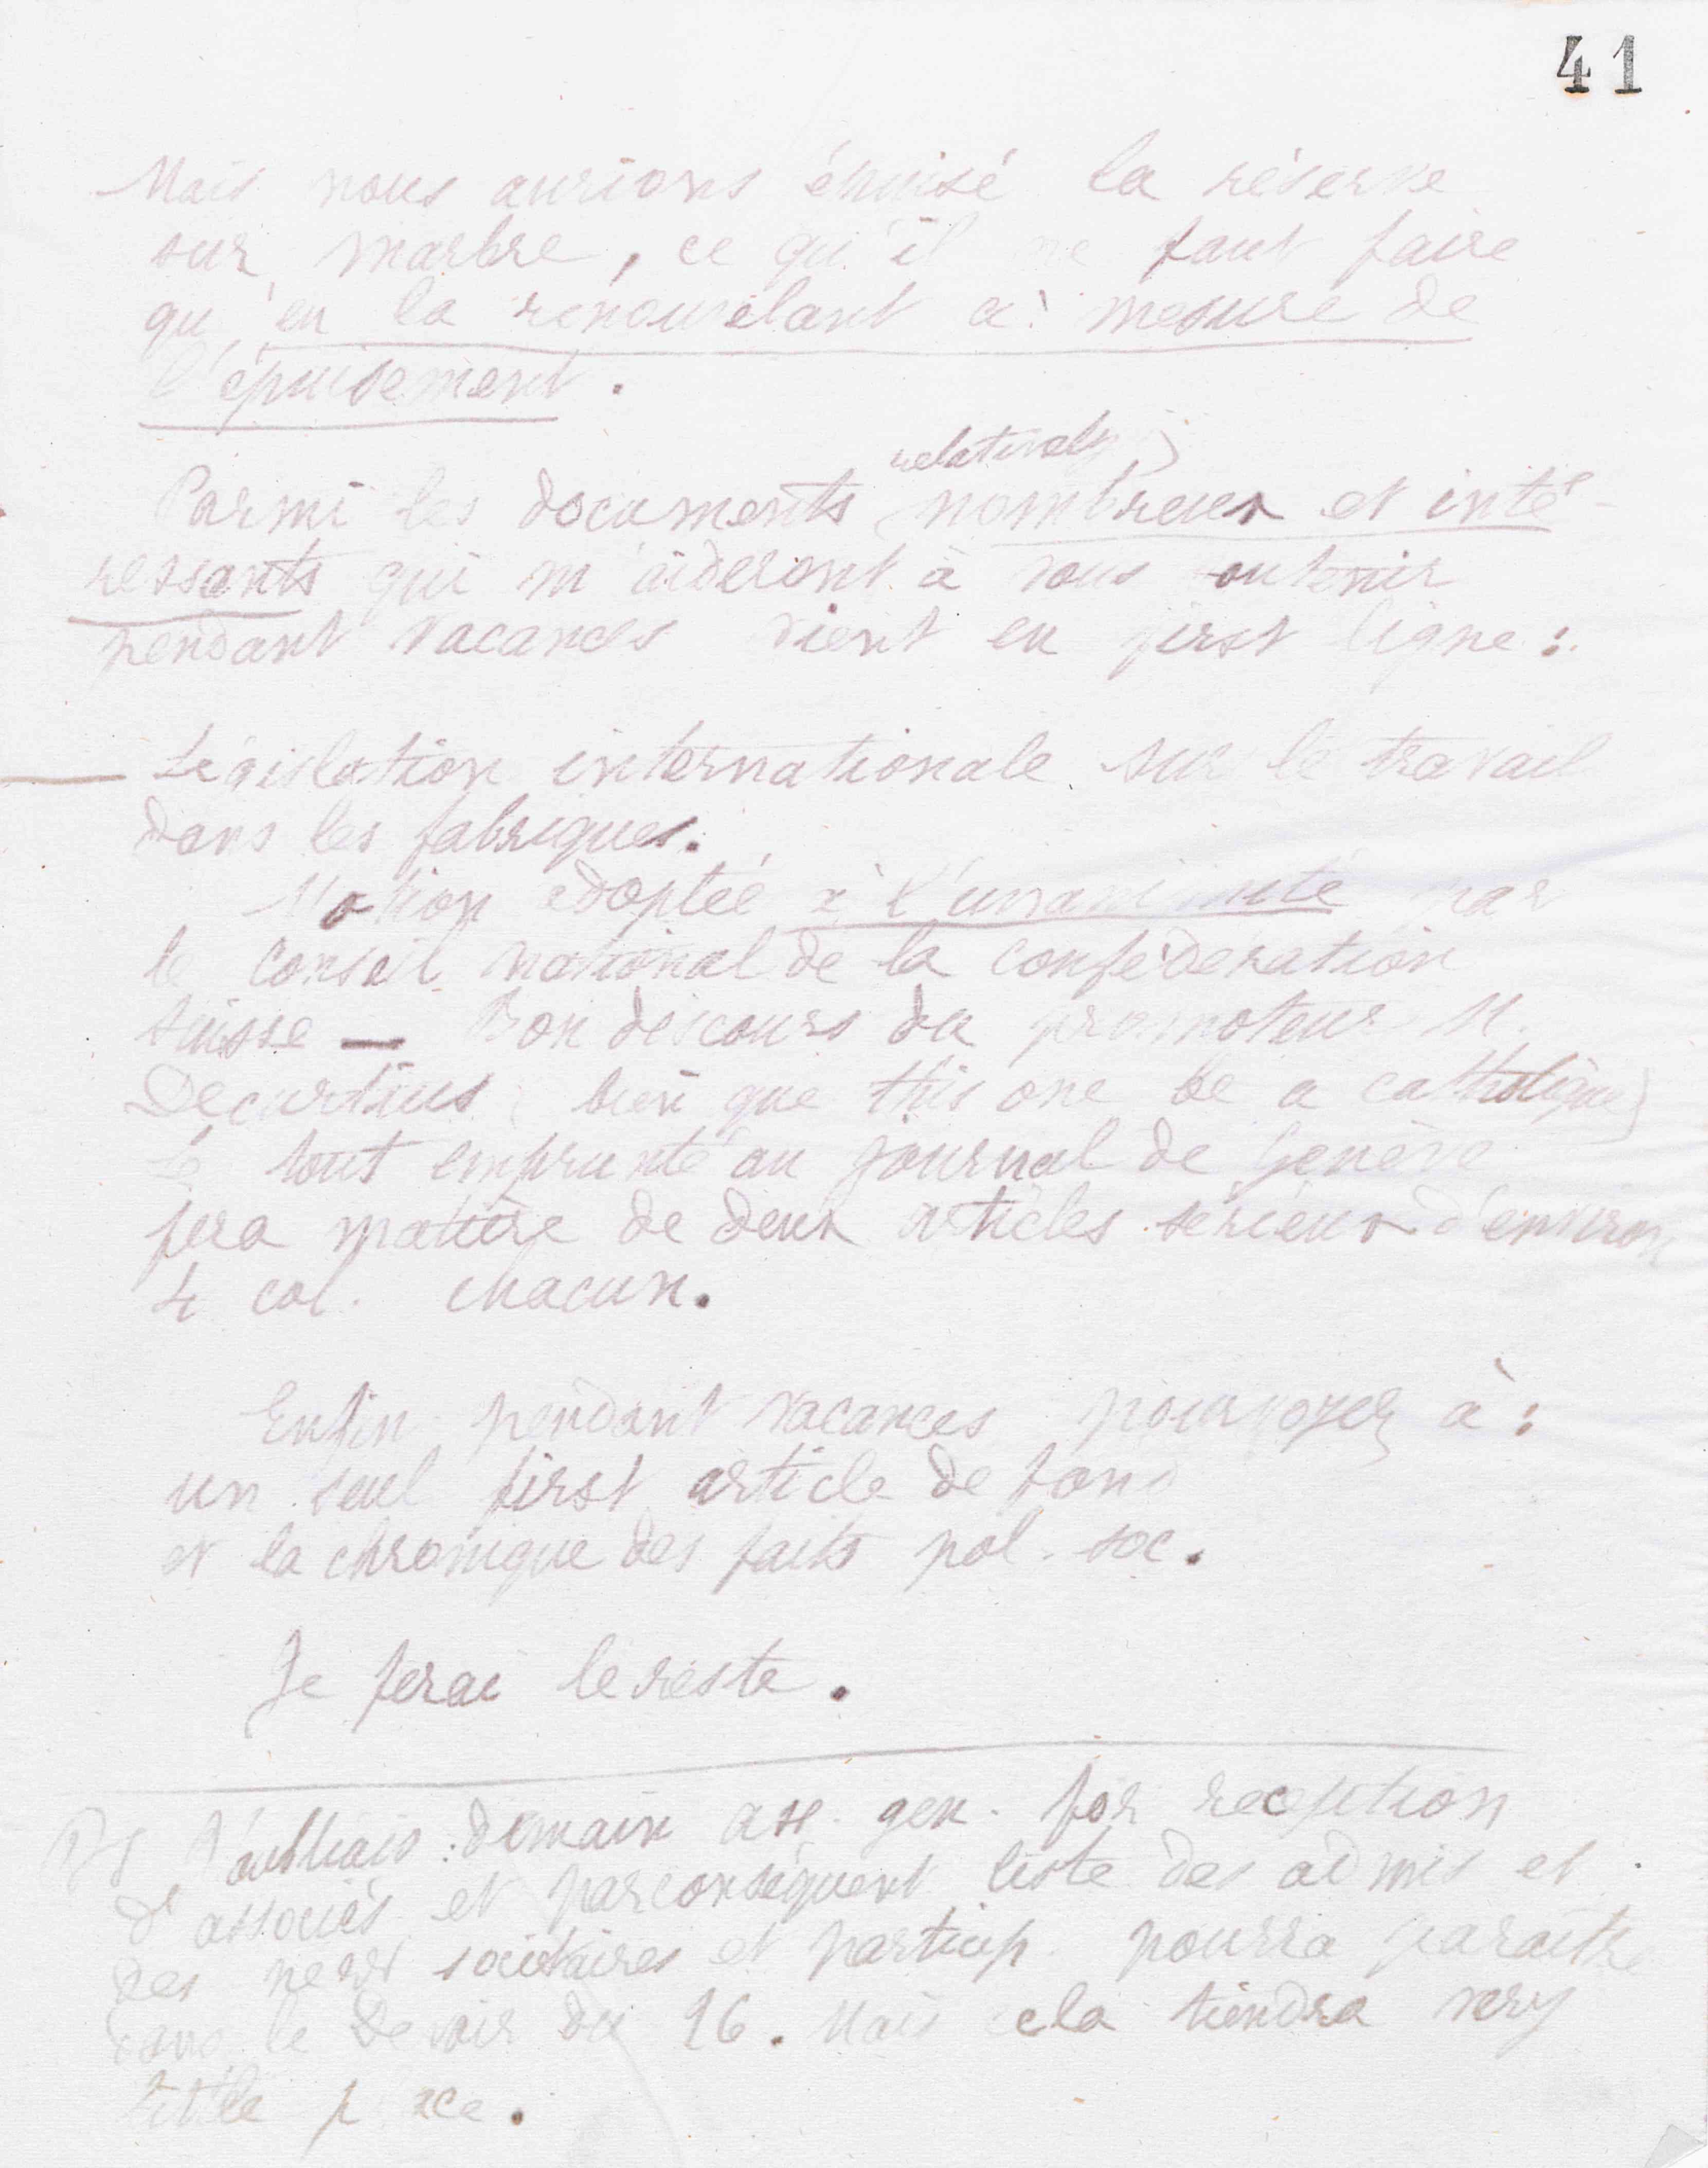 41
Mais nous aurions épuisé la réserve
sur marbre, ce qu'il ne faut faire
qu'en la renouvelant à mesure de
l'épuisement.
relatively
Parmi les documents (nombreux et inté-
ressants qui m'aideront à vous
pendant vacances vient en first ligne :
Législation internationale sur le travail
dans les fabriques.
Motion adoptée à l'unanimité par
le conseil national de la confédération
suisse — Bon discours du promoteur M.
Decurtins (bien que this one be a catholique)
Le tout emprunté au journal de Genève
fera matière de deux articles sérieux d'environ
4 col. chacun.
Enfin pendant vacances pourvoyez à :
un seul first article de fond
et la chronique des faits pol. soc.
Je ferai le reste.
PS J'oubliais : demain ass. gen. for reception
d'associés et par conséquent liste des admis et
des news sociétaires et particip. pourra paraître
dans le Devoir du 16. Mais cela tiendra very
little place.